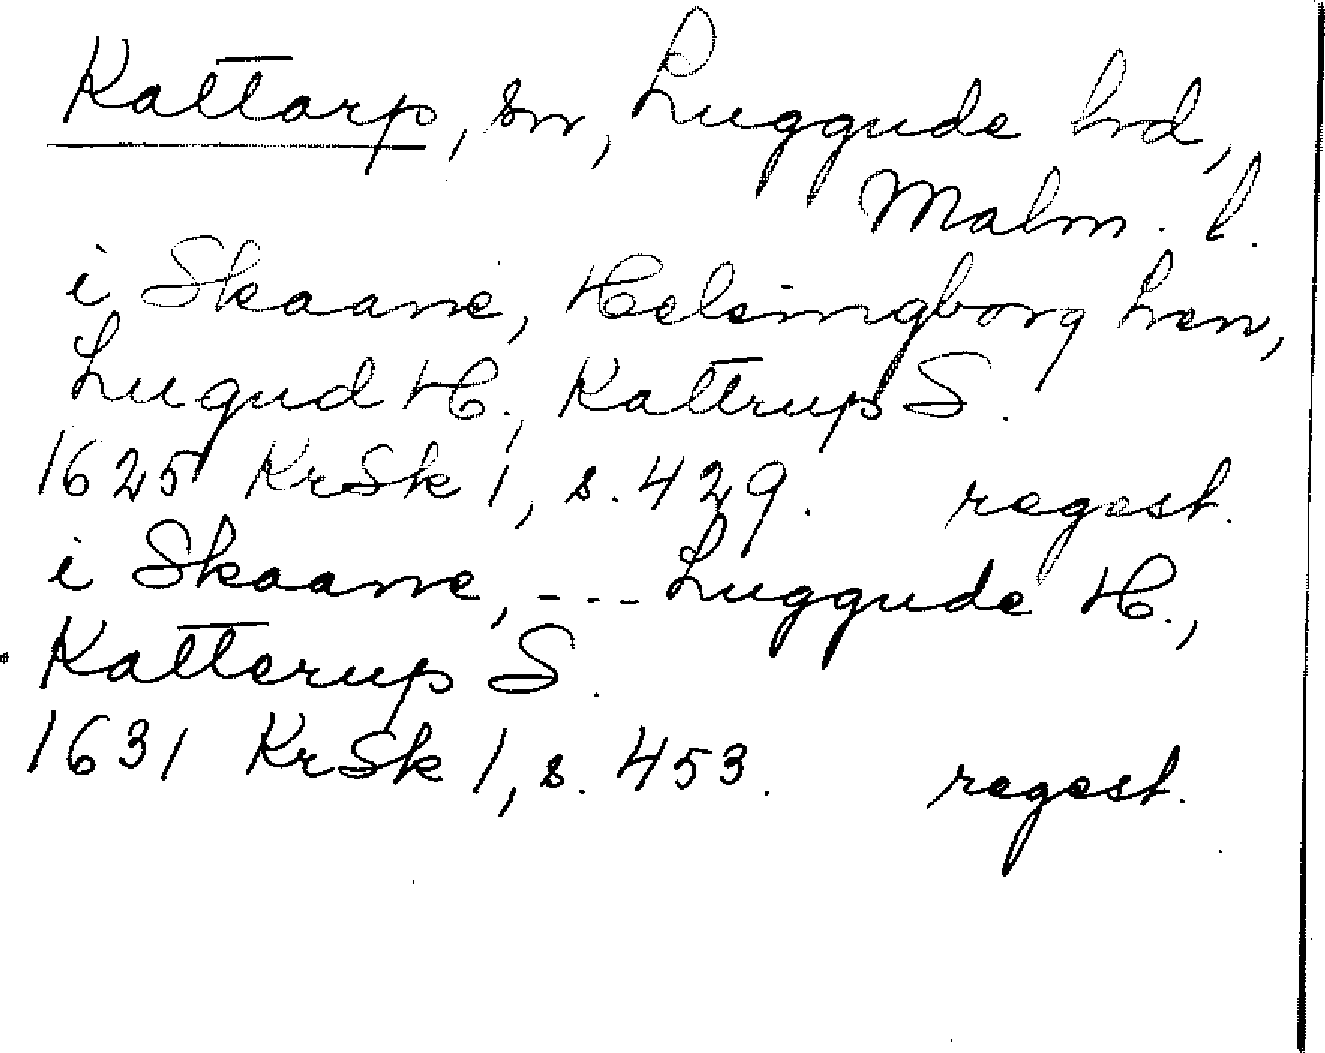 Kattarp, sn, Luggude hd,
Malm. l.
i Skaane, Helsingborg Len,
Lugud H., Kattrup S.
1625 KrSk 1, s. 429. regest.
i Skaane, --- Luggude H.,
Katterup S.
1631 KrSk 1, s. 453. regest.